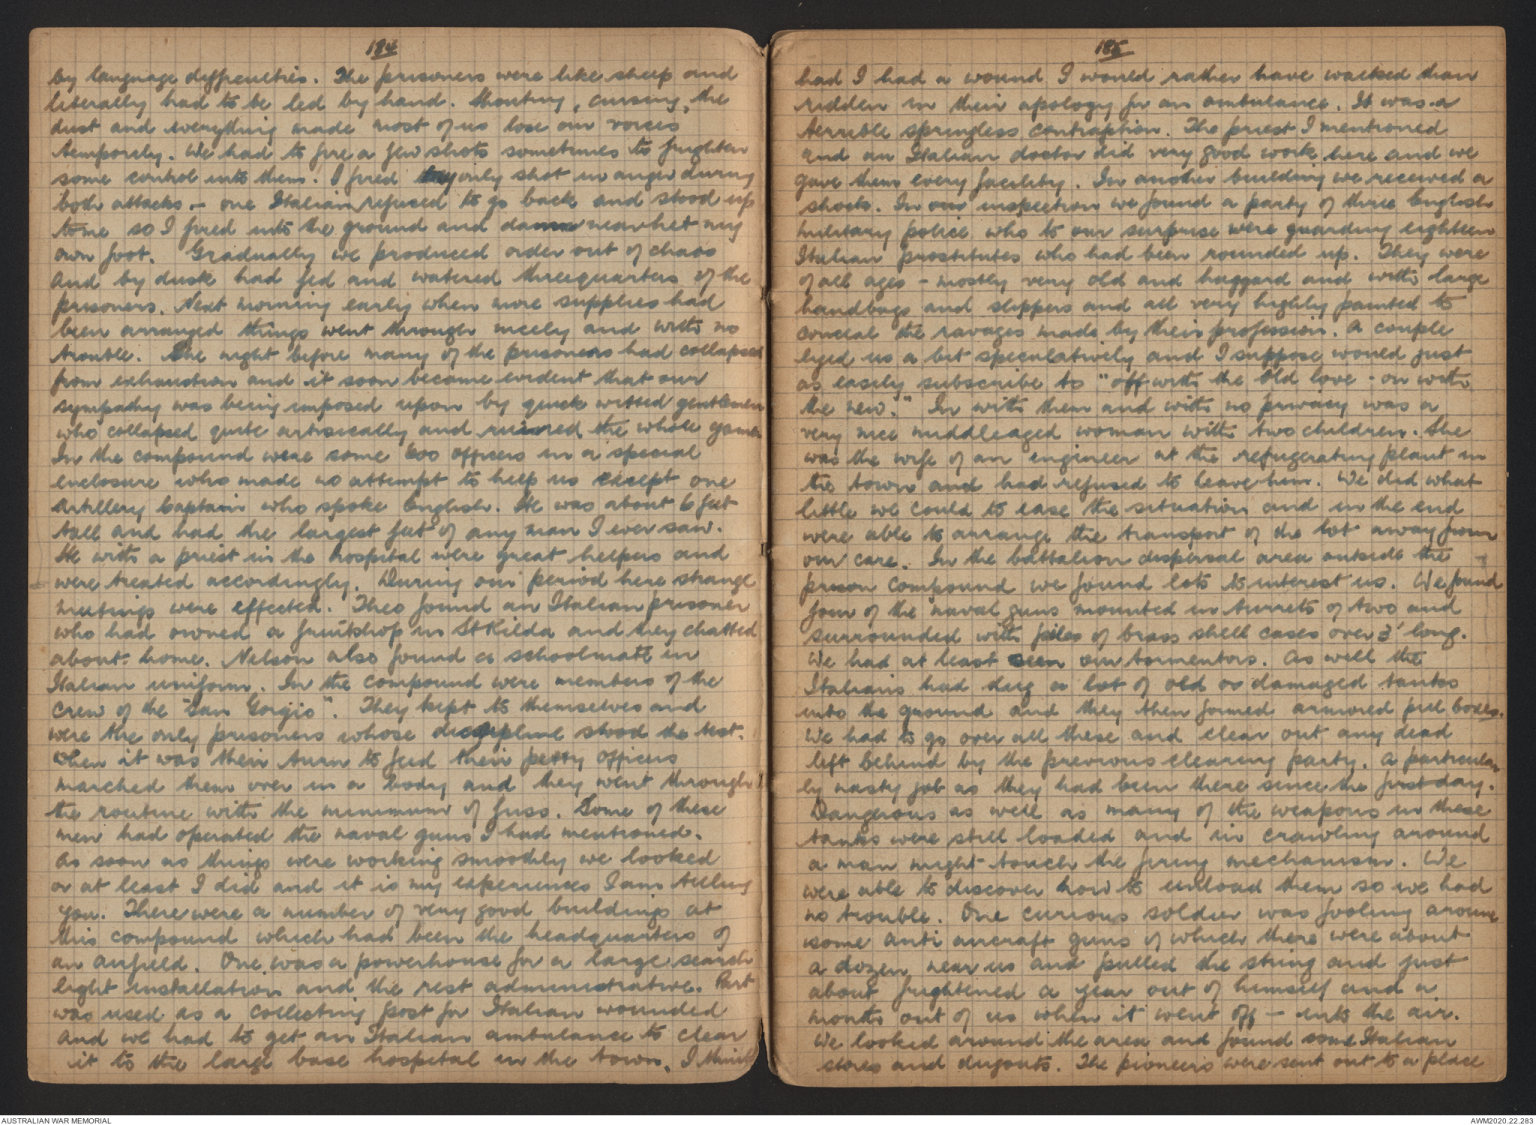 184
by language difficulties. The prisoners were like sheep and
literally had to be led by hand. Shouting, cursing, the
dust and everything made most of us lose our voices
temporely. We had to fire a few shots sometimes to frighten
some control into them. I fired my only shot in anger during
both attacks - one Italian refused to go back and stood up
to me so I fired into the ground and damn near het my
own foot. Gradually we produced order out of chaos
and by dusk had fed and watered threequarters of the
prisoners. Next morning early when more supplies had
been arranged things went through nicely and with no
trouble. The night before many of the prisoners had collapsed
from exhaustion and it soon became evident that our
sympathy was being imposed upon by quick witted gentlemen
who collapsed quite artistically and ruined the whole game.
In the compound were some 600 officers in a special
enclosure who made no attempt to help us except one
Artillery Captain who spoke English. He was about 6 feet
tall and had the largest feet of any man I ever saw.
He with a priest in the hospital were great helpers and
were treated accordingly. During our period here strange
meetings were effected. Theo found an Italian prisoner
who had owned a fruitshop in St Kilda and they chatted
about home. Nelson also found a schoolmate in
Italian uniform. In the compound were members of the
crew of the "San Gorgio". They kept to themselves and
were the only prisoners whose discipline stood the test.
When it was their turn to feed their petty officers
marched them over in a body and they went through
the routine with the minimum of fuss. Some of these
men had operated the naval guns I had mentioned.
As soon as things were working smoothly we looked
or at least I did and it is my experiences I am telling
you. There were a number of very good buildings at
this compound which had been the headquarters of
an airfield. One was a powerhouse for a large search
light installation and the rest administrative. Part
was used as a collecting post for Italian wounded
and we had to get an Italian ambulance to clear
it to the large base hospital in the town. I think
185
had I had a wound I would rather have walked than
ridden in their apology for an ambulance. It was a
terrible springless contraption. The priest I mentioned
and an Italian doctor did very good work here and we
gave them every facility. In another building we received a
shock. In our inspection we found a party of three English
military police who to our surprise were guarding eighteen
Italian prostitutes who had been rounded up. They were
of all ages - mostly very old and haggard and with large
handbags and slippers and all very highly painted to
conceal the ravages made by their profession. A couple
eyed us a bit speculatively and I suppose would just
as easily subscribe to "off with the old love - on with
the new." In with them and with no privacy was a
very nice middleaged woman with two children. She
was the wife of an engineer at the refrigerating plant in
the town and had refused to leave him. We did what
little we could to ease the situation and in the end
were able to arrange the transport of the lot away from
our care. In the battalion dispersal area outside the
prison compound we found lots to interest us. We found
four of the naval guns mounted in turrets of two and
surrounded with piles of brass shell cases over 3' long.
We had at least seen our tormentors. As well the
Italians had dug a lot of old or damaged tanks
into the ground and they then formed armored pill boxes.
We had to go over all these and clear out any dead
left behind by the previous clearing party. A particular
ly nasty job as they had been there since the first day.
Dangerous as well as many of the weapons in these
tanks were still loaded and in crawling around
a man might touch the firing mechanism. We
were able to discover how to unload them so we had
no trouble. One curious soldier was fooling around
some anti aircraft guns of which there were about
a dozen near us and pulled the string and just
about frightened a year out of himself and a
month out of us when it went off - into the air.
We looked around the area and found some Italian
stores and dugouts. The pioneers were sent out to a place
AUSTRALIAN WAR MEMORIAL
AWM2020.22.283